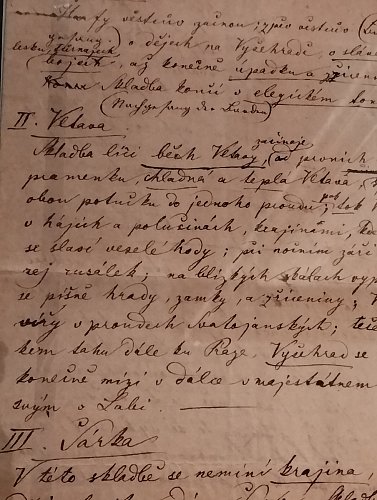 věštcův začnou; zpěv věštcův
o dějech na Vyšehradě, o slávě
lesku, turnajích
bojích, až konečně úpadku a zříceninách
Skladba končí v elegickém tonu
(Nachgesang der Barden)
II. Vltava
Skladba líčí běh Vltavy, začínaje (od prvních
pramenků, chladná a teplá Vltava,
obou potůčků do jednoho proudu; pak tok
v hájích a po lučinách, krajinami, kde
se slaví veselé hody; při nočním záři
rej rusálek; na blízkých skalách vyp
se pyšné hrady, zámky, a zříceniny;
víří v proudech Svatojanských; teče
kem tahu dále ku Praze, Vyšehrad se
konečně mizí v dálce v majestátném
svým v Labi.
III. Šárka
V této skladbě se nemíní krajina,